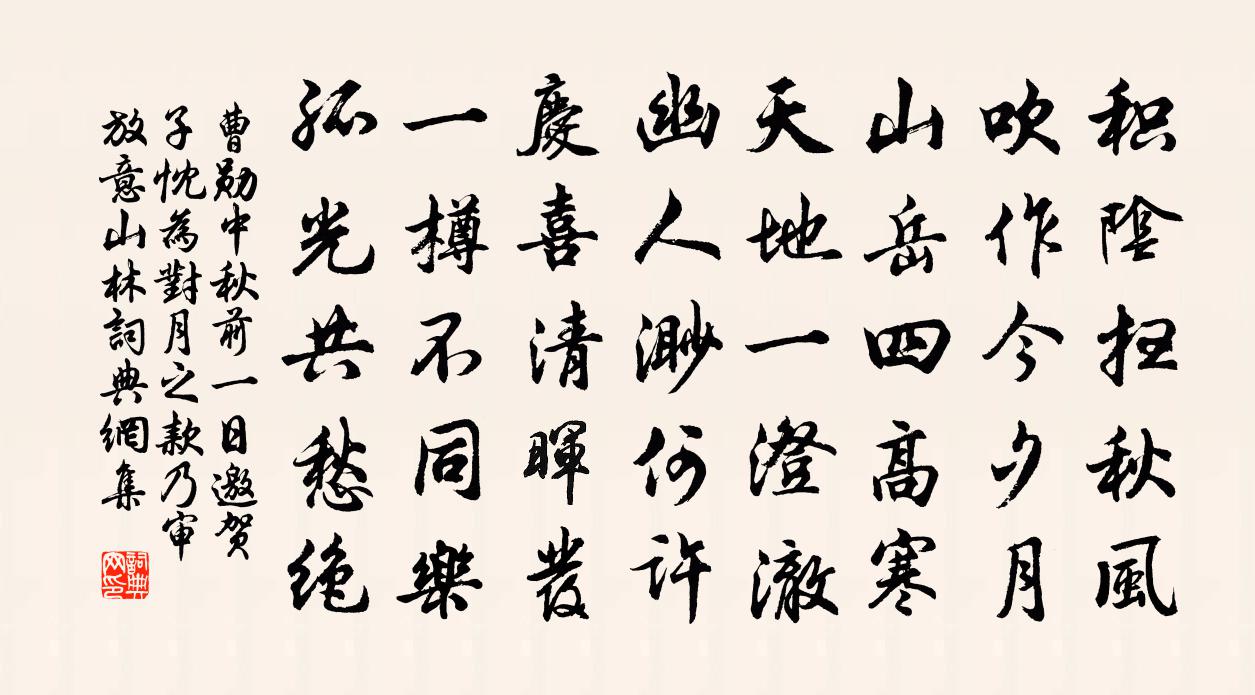 积陰扫秋風
吹作今夕月
山岳四高寒
天地一澄澈
幽人渺何许
慶喜清暉發
一樽不同樂
孤光共愁绝
曹勋中秋前一日邀贺
子忱為對月之款乃审
放意山林詞典網集
詞典網印